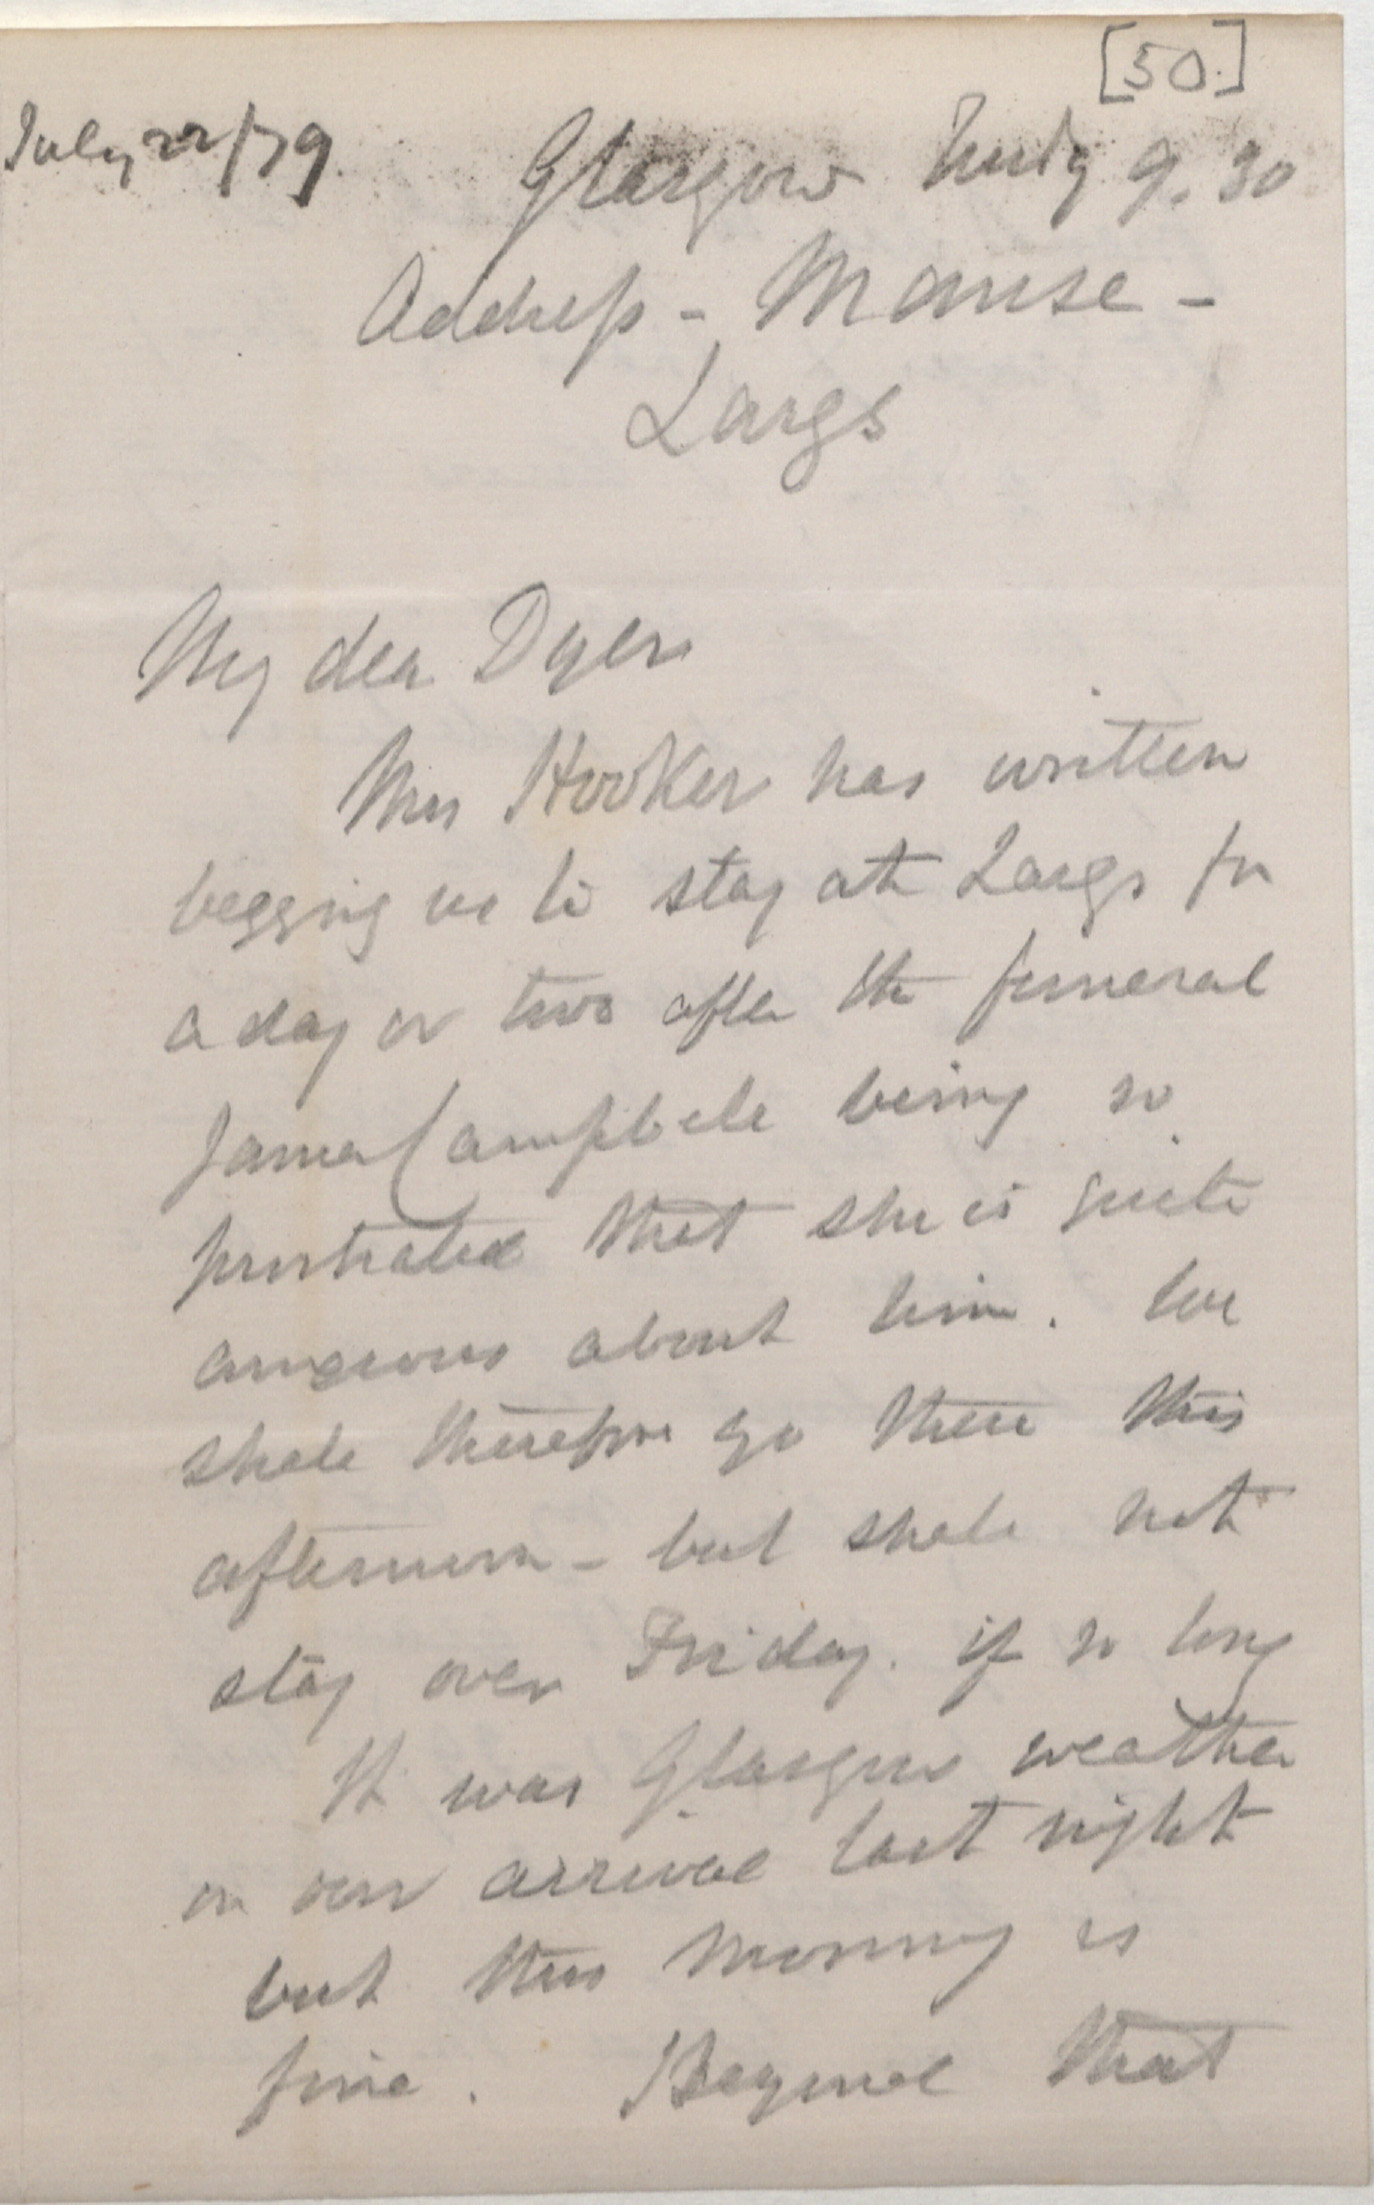 [50.]
July 22/79.
Glasgow Tuesdy 9.30
Address - Manse -
Largs
My dear Dyer
Mrs Hooker has written
begging us to stay at Largs for
a day or two after the funeral
James Campbell being so
prostrated that she is quite
anxious about him. We
shall therefore go there this
afternoon - but shall not
stay over Friday. if so long
It was Glasgow weather
on our arrival last night
but this morning is
fine. Beyond that